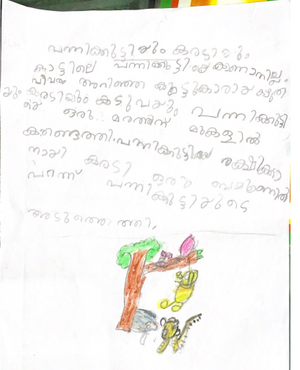 പന്നിക്കുട്ടിയും കരടിയും
കാട്ടിലെ പന്നിക്കുട്ടിയെ കാണാനില്ല.
വിവരം അറിഞ്ഞ കൂട്ടുകാരായ
കരടിയും കടുവയും പന്നിക്കുട്ടി
യെ ഒരു മരത്തിന് മുകളിൽ
കണ്ടെത്തി. പന്നിക്കുട്ടിയെ രക്ഷിക്കാ
നായി കരടി ഒരു ബലൂണിൽ
പറന്ന് പന്നി
ക്കുട്ടിയുടെ
അടുത്തെത്തി.